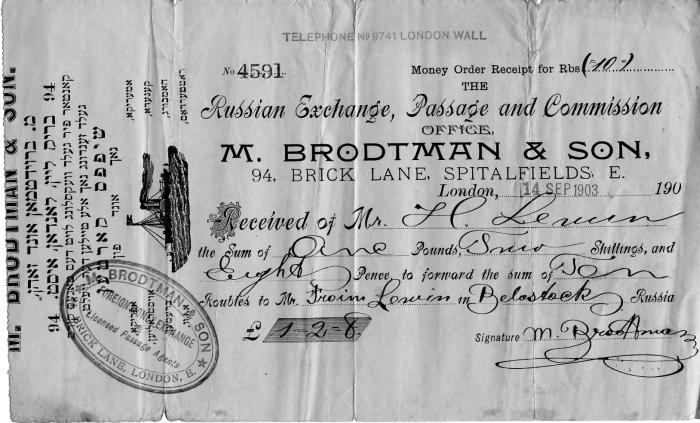 TELEPHONE Nº 9741 LONDON WALL
No 4591.
Money Order Receipt for Rbs (-10-)
THE
Russian Exchange, Passage and Commission
OFFICE,
M. BRODTMAN & SON,
94, BRICK LANE, SPITALFIELDS, E.
London, 14 SEP 1903 190
Received of Mr. H. Lewin
the Sum of One Pounds, Two Shillings, and
Eight Pence, to forward the sum of Ten
Roubles to Mr. Froim Lewin in Belostock Russia
£ 1-2-8.
Signature M. Brodtman
M. BRODTMAN & SON.
מ. ברודטמאן אונד זאהן,
94 בריק ליין, לאנדאן איסט. 94
שיפס קארטען
נאך
אמעריקא,
M. BRODTMAN & SON
FOREIGN EXCHANGE
Licensed Passage Agents
BRICK LANE, LONDON, E.